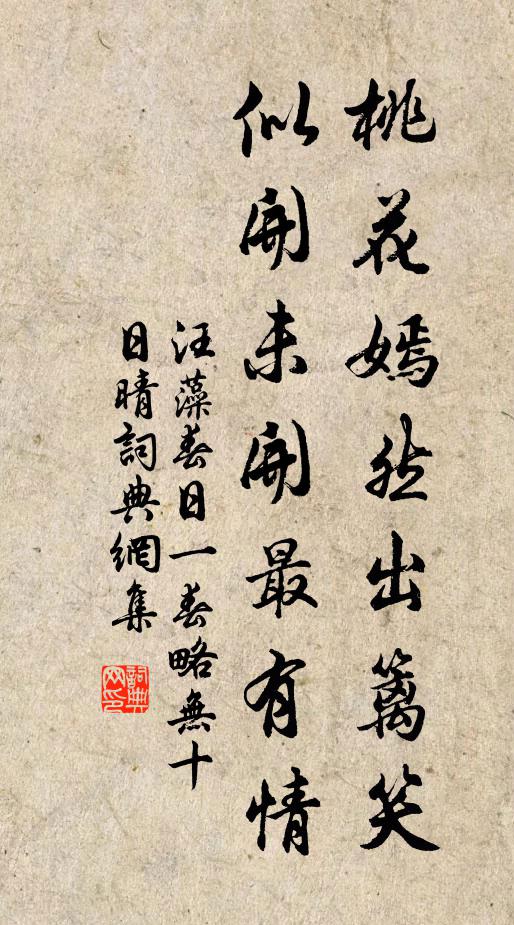 桃花嫣然出篱笑
似開未開最有情
汪藻春日一春略無十
日晴詞典網集
詞典网印